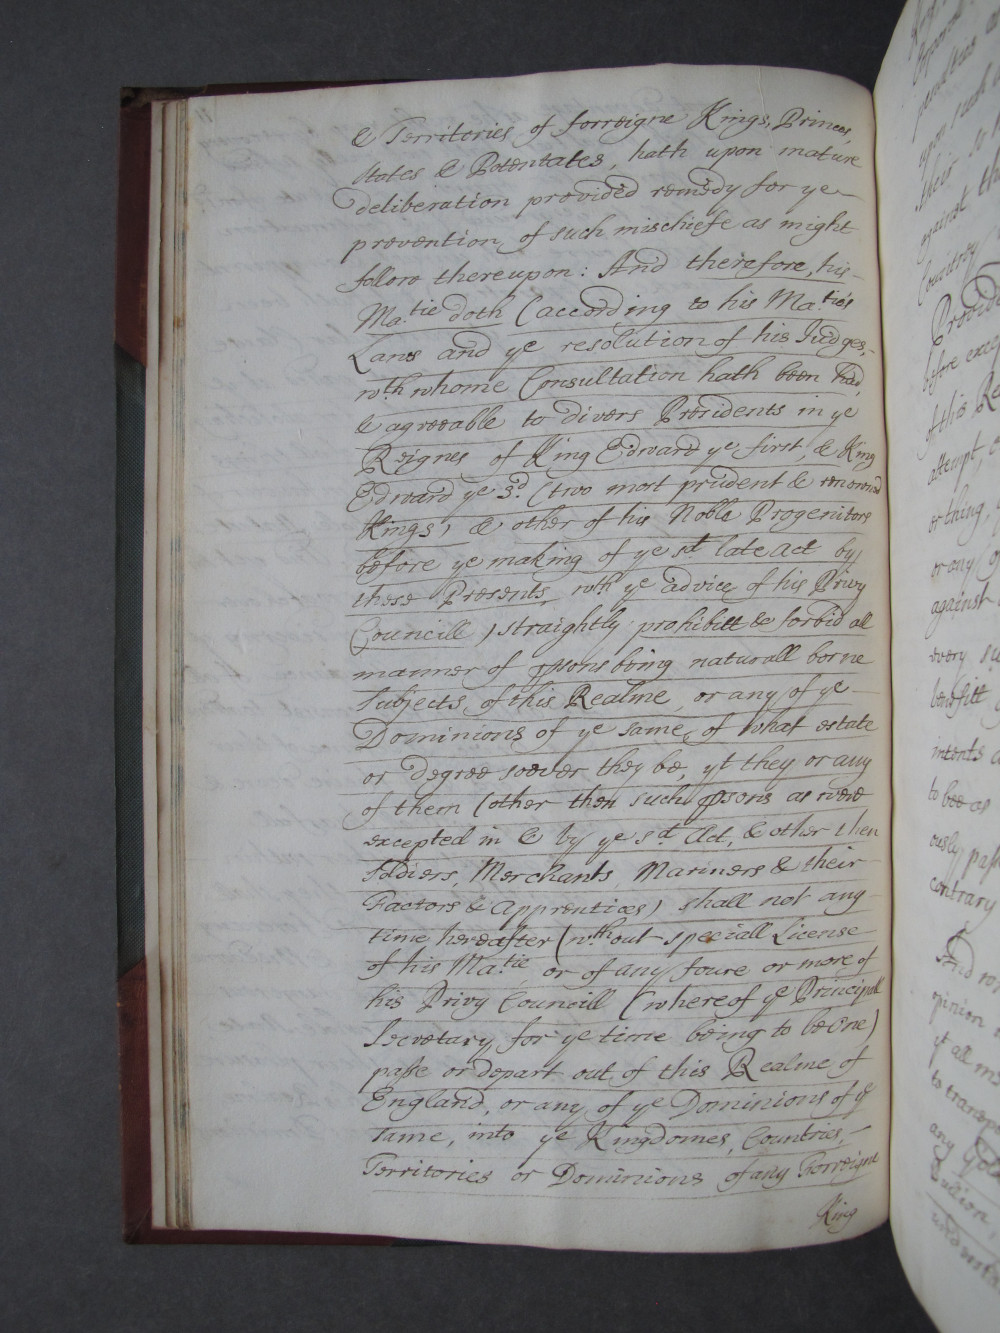 & Territories of forreigne Kings, Princes,
States & Potentates, hath upon mature
deliberation provided remedy for ye
prevention of such mischiefe as might
follow thereupon: And therefore, his
Ma.tie doth (according to his Ma.ties
Laws and ye resolution of his Judges,
wth whome Consultation hath been had,
& agreeable to divers Presidents in ye
Reignes of King Edward ye first, & King
Edward ye 3d (two most prudent & renowned
Kings) & other of his Noble Progenitors
before ye making of ye sd late Act by
these Presents, wth ye advice of his Privy
Councill) straightly prohibitt & forbid all
manner of psons being naturall borne
Subjects of this Realme, or any of ye
Dominions of ye same, of what estate
or degree soever they be, yt they or any
of them (other then such psons as were
excepted in & by ye sd Act, & other then
Soldiers, Merchants, Mariners & their
Factors & Apprentices) shall not any
time hereafter (wthout speciall License
of his Ma.tie or of any foure or more of
his Privy Councill (whereof ye Principall
Secretary for ye time being to be one)
passe or depart out of this Realme of
England, or any of ye Dominions of ye
same, into ye Kingdomes, Countries,
Territories or Dominions of any Forreigne
King
against the
Country
before
of this
attempt,
or thing,
or any
against
every
benefitt
intents
to bee as
ously
contrary
And
pinion
yt all
to
any
Bullion,